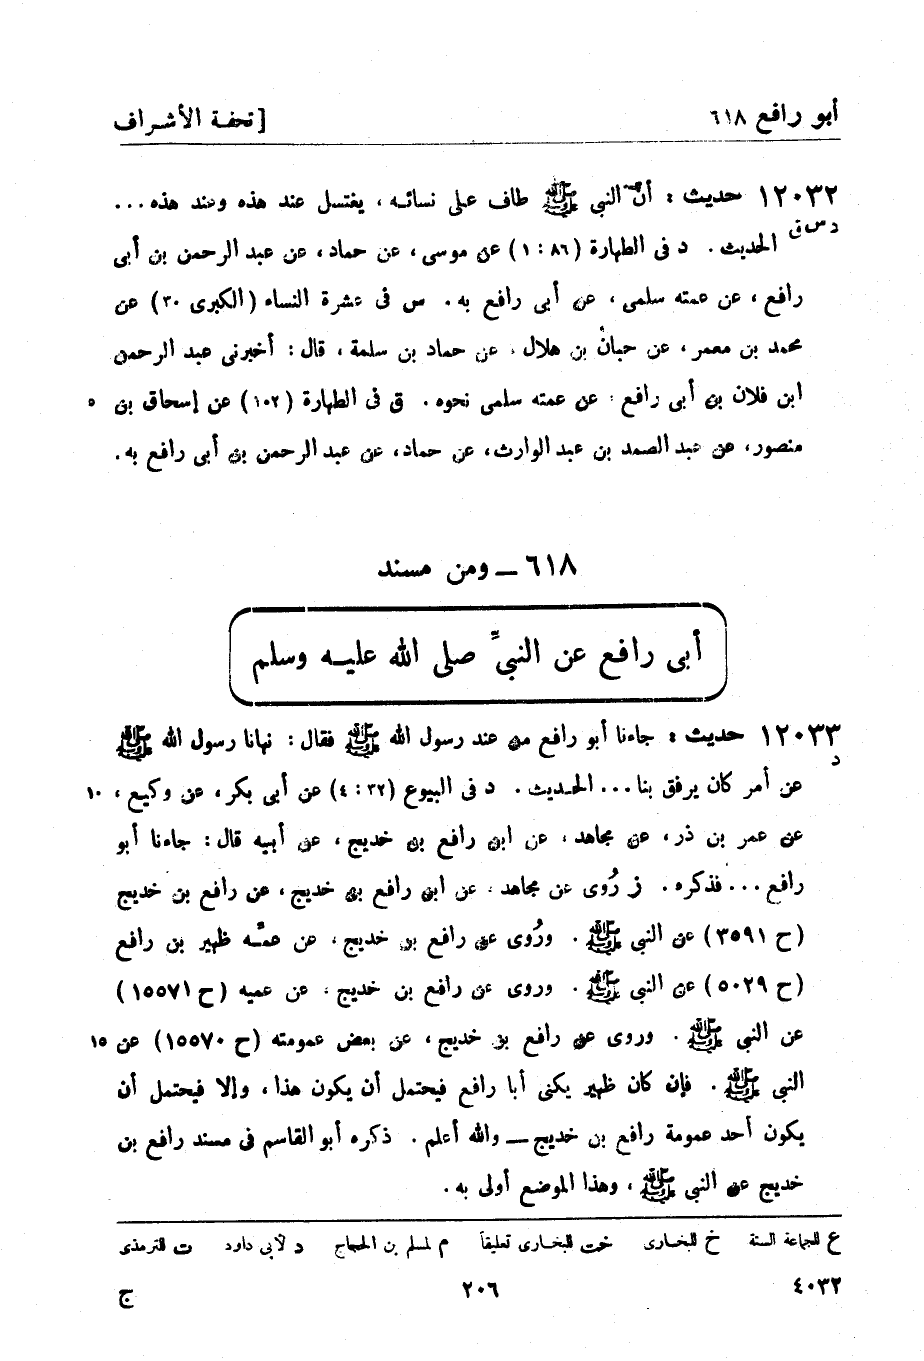 أبو رافع ٦١٨ [ تحفة الأشراف
١٢٠٣٢ حديث : أنّ النبي ﷺ طاف على نسائه ، يغتسل عند هذه وعند هذه ...
د س ق الحديث . د فى الطهارة (٨٦ : ١) عن موسى ، عن حماد ، عن عبد الرحمن بن أبى
رافع ، عن عمته سلمى ، عن أبى رافع به . س فى عشرة النساء (الكبرى ٣٠) عن
محمد بن معمر ، عن حبان بن هلال ، عن حماد بن سلمة ، قال : أخبرنى عبد الرحمن
ابن فلان بن أبى رافع ، عن عمته سلمى نحوه . ق فى الطهارة (١٠٢) عن إسحاق بن ٥
منصور ، عن عبد الصمد بن عبد الوارث ، عن حماد ، عن عبد الرحمن بن أبى رافع به .
٦١٨ ــ ومن مسند
أبى رافع عن النبىّ صلى الله عليه وسلم
١٢٠٣٣ حديث : جاءنا أبو رافع من عند رسول الله ﷺ فقال : نهانا رسول الله ﷺ
د
عن أمر كان يرفق بنا ... الحديث . د فى البيوع (٣٢ : ٤) عن أبى بكر ، عن وكيع ، ١٠
عن عمر بن ذر ، عن مجاهد ، عن ابن رافع بن خديج ، عن أبيه قال : جاءنا أبو
رافع ... فذكره . ز رُوى عن مجاهد ، عن ابن رافع بن خديج ، عن رافع بن خديج
(ح ٣٥٩١) عن النبى ﷺ . ورُوى عن رافع بن خديج ، عن عمّه ظهير بن رافع
(ح ٥٠٢٩) عن النبى ﷺ . وروى عن رافع بن خديج ، عن عميه (ح ١٥٥٧١)
عن النبى ﷺ . وروى عن رافع بن خديج ، عن بعض عمومته (ح ١٥٥٧٠) عن ١٥
النبى ﷺ . فإن كان ظهير يكنى أبا رافع فيحتمل أن يكون هذا ، وإلا فيحتمل أن
يكون أحد عمومة رافع بن خديج ــ والله أعلم . ذكره أبو القاسم فى مسند رافع بن
خديج عن النبى ﷺ ، وهذا الموضع أولى به .
ع للجماعة الستة خ للبخارى خت للبخارى تعليقاً م لمسلم بن الحجاج د لأبى داود ت للترمذى
٤٠٣٢ ٢٠٦ ج